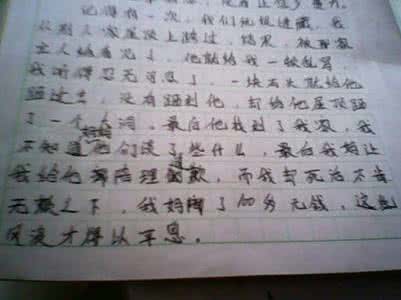 记得有一次，我们他娘进藏，我
从别人家屋顶上踏过，结果，被那家
主人给看见了，他就给我一顿乱骂，
我听得忍无可忍了，一块石头就给他
踊过去，没有踊到他，却给他屋顶踊
了一个大洞，最后他找到了我家，我
不知道他们说了些什么，最后我妈让
我给他赔理道歉，而我却死活不肯
无赖之下，我妈掏了100多元钱，这些
风波才得以平息。